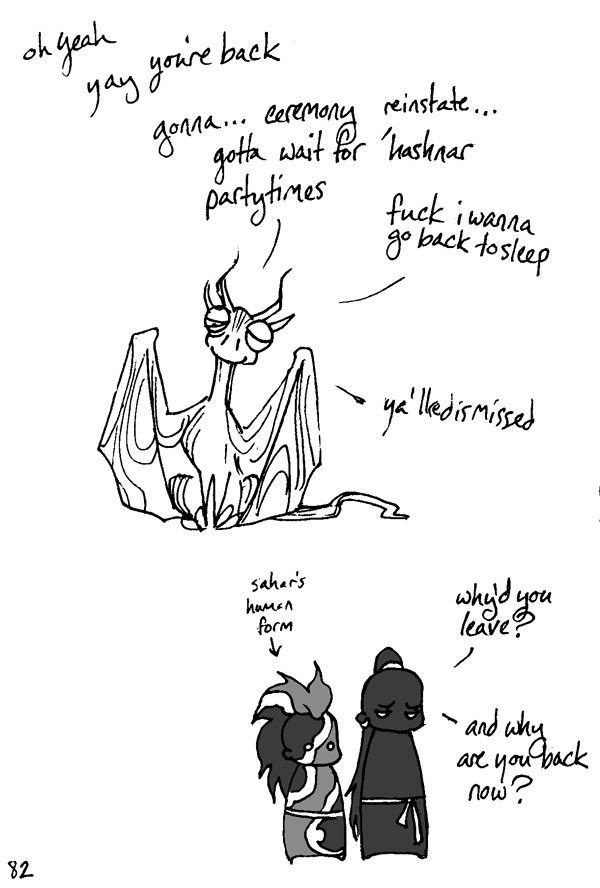 oh yeah
yay you're back
gonna... ceremony reinstate...
gotta wait for 'hashnar
partytimes
fuck i wanna
go back to sleep
ya'lledismissed
sahar's
human
form
why'd you
leave?
and why
are you back
now?
82